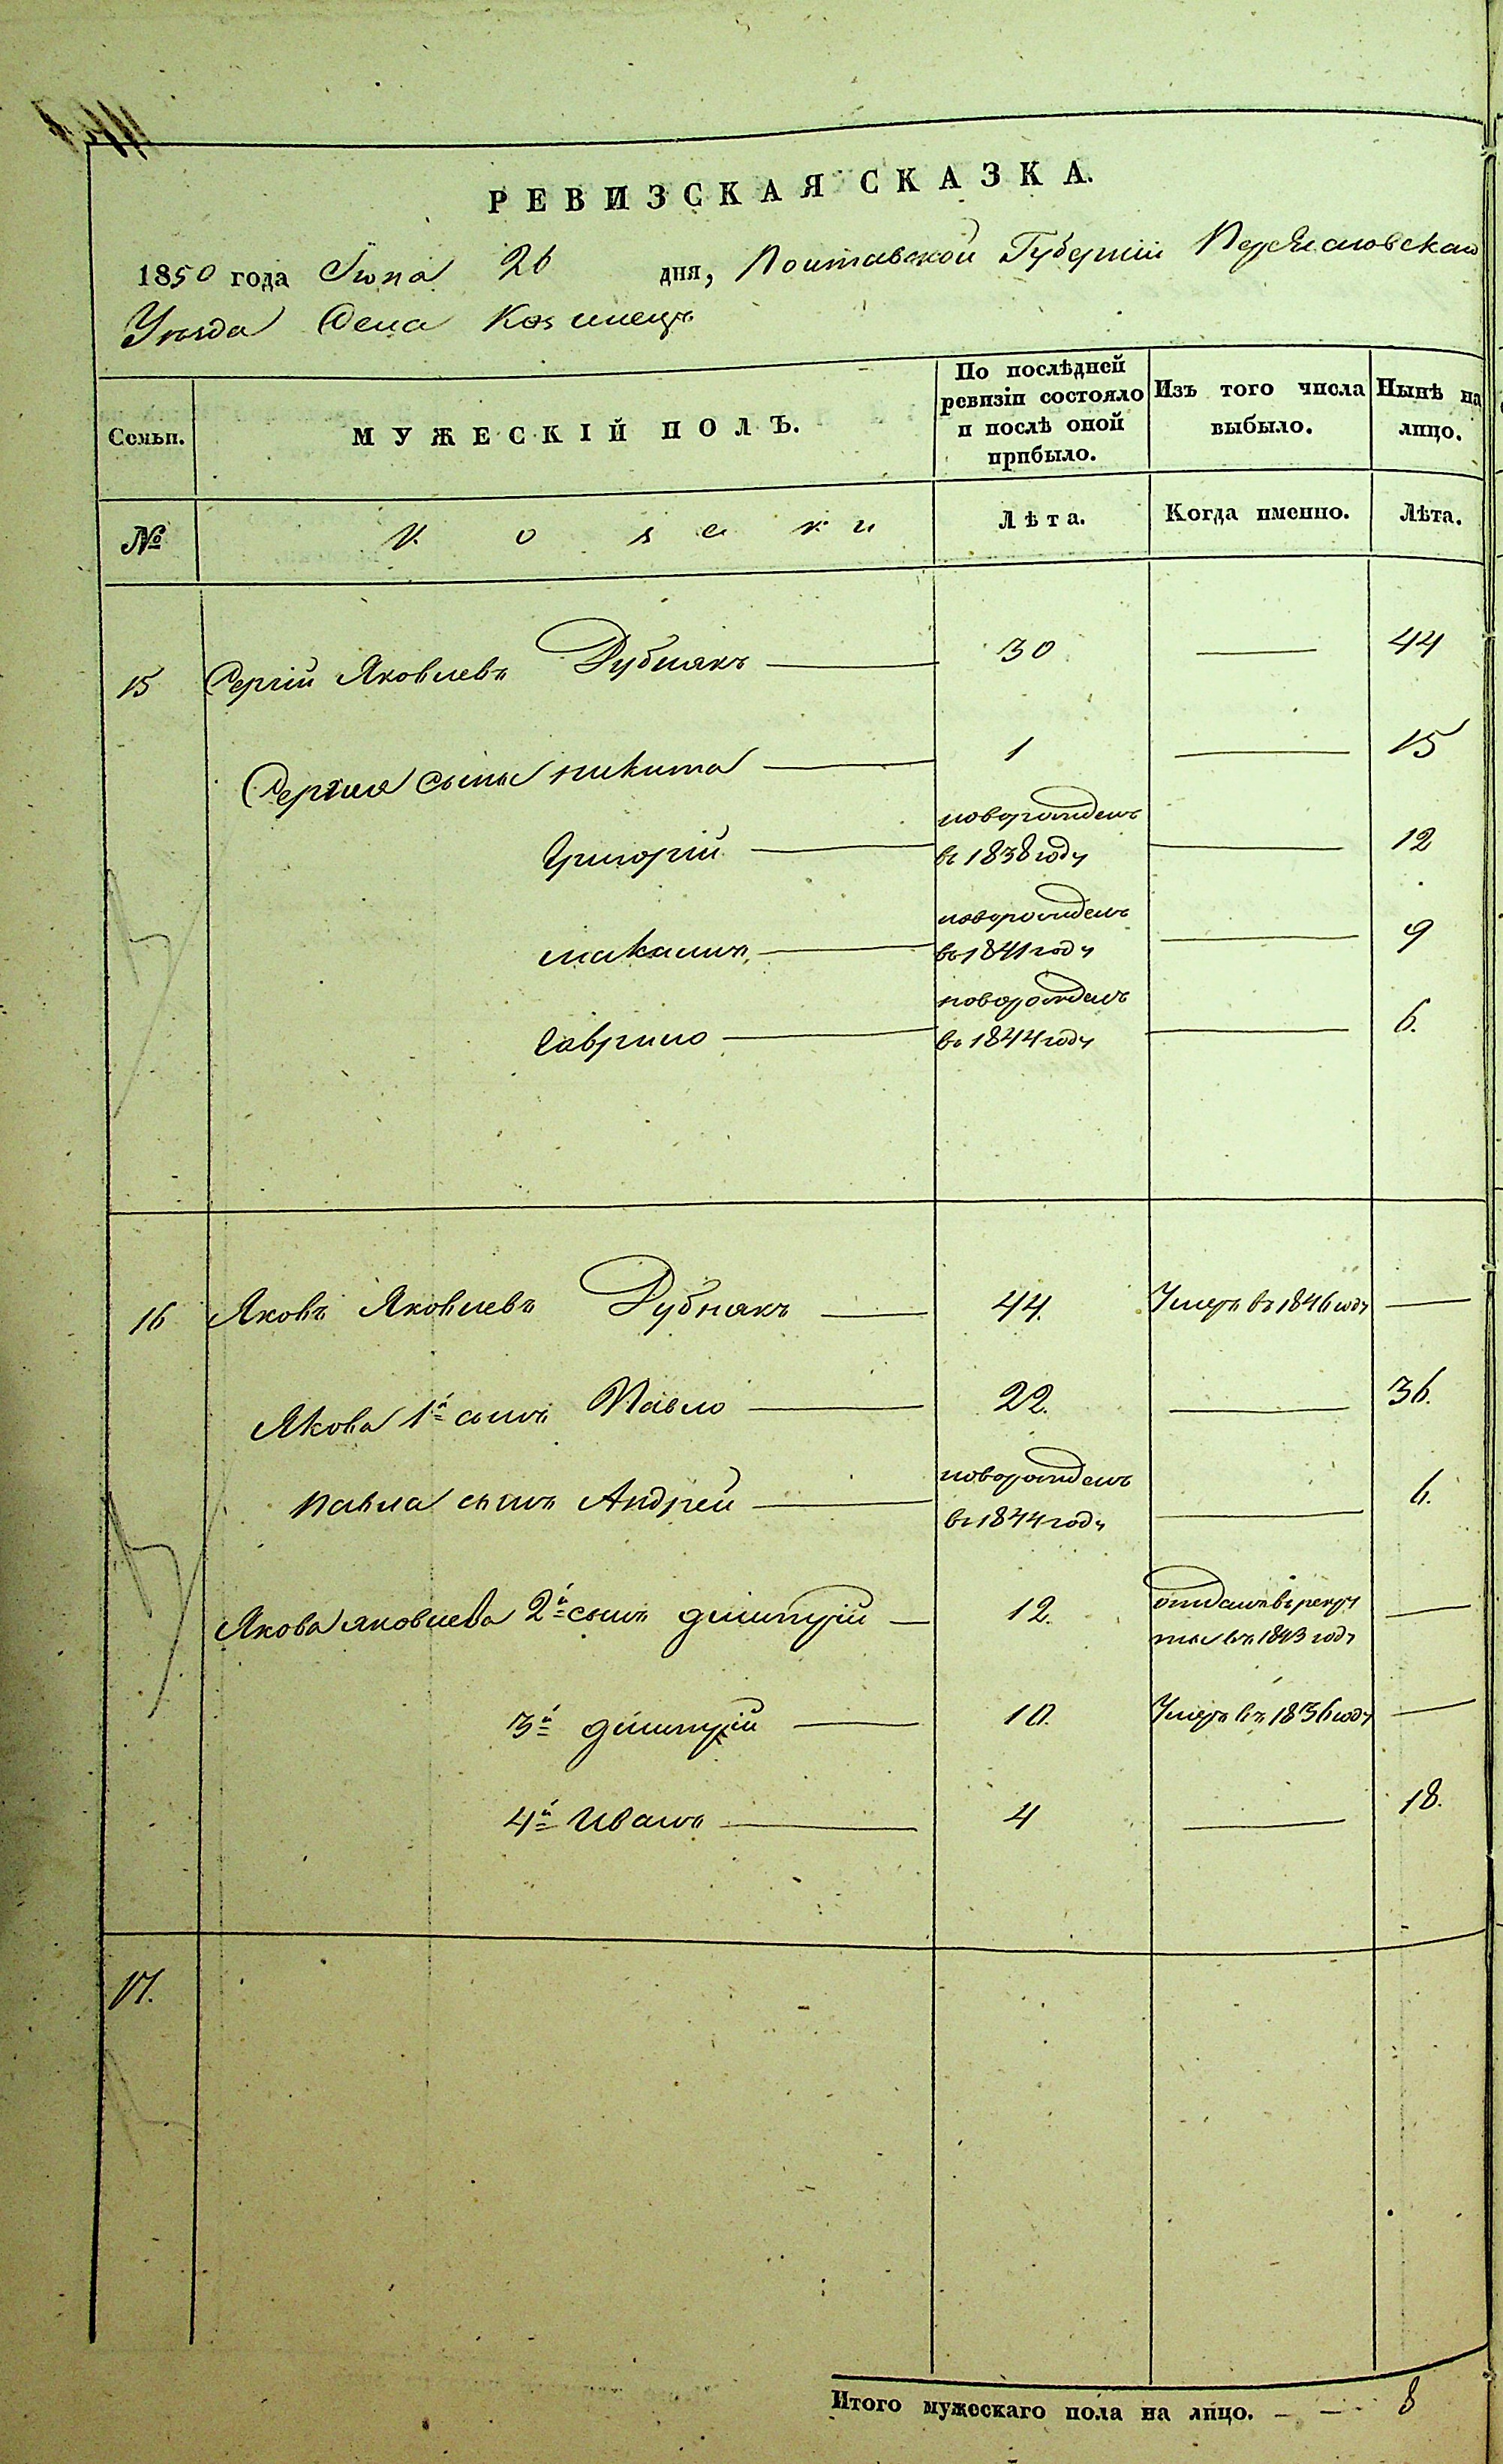 РЕВИЗСКАЯ СКАЗКА.
1850 года Іюня 26 дня, Полтавской Губерніи Переяславскаго
Уѣзда Села
Семьи. МУЖЕСКІЙ ПОЛЪ. По послѣдней ревизіи состояло и послѣ оной прибыло. Изъ того числа выбыло. Нынѣ на лицо.
№ Козаки Лѣта. Когда именно. Лѣта.
15 Сергій Яковлевъ Дубнякъ — 30 — 44
Сергія сыны Никита — 1 — 15
Григорій — новорожденъ въ 1838 году — 12
Максимъ — новорожденъ въ 1841 году — 9
Гаврило — новорожденъ въ 1844 году — 6.
16 Яковъ Яковлевъ Дубнякъ — 44. Умеръ въ 1846 году —
Якова 1й сынъ Павло — 22. — 36.
Павла сынъ Андрей — новорожденъ въ 1844 году — 6.
Якова Яковлева 2й сынъ Дмитрій — 12. отданъ въ рекруты въ 1843 году —
3й Дмитрій — 10. Умеръ въ 1836 году —
4й Иванъ — 4 — 18.
17.
Итого мужескаго пола на лицо. — — 8